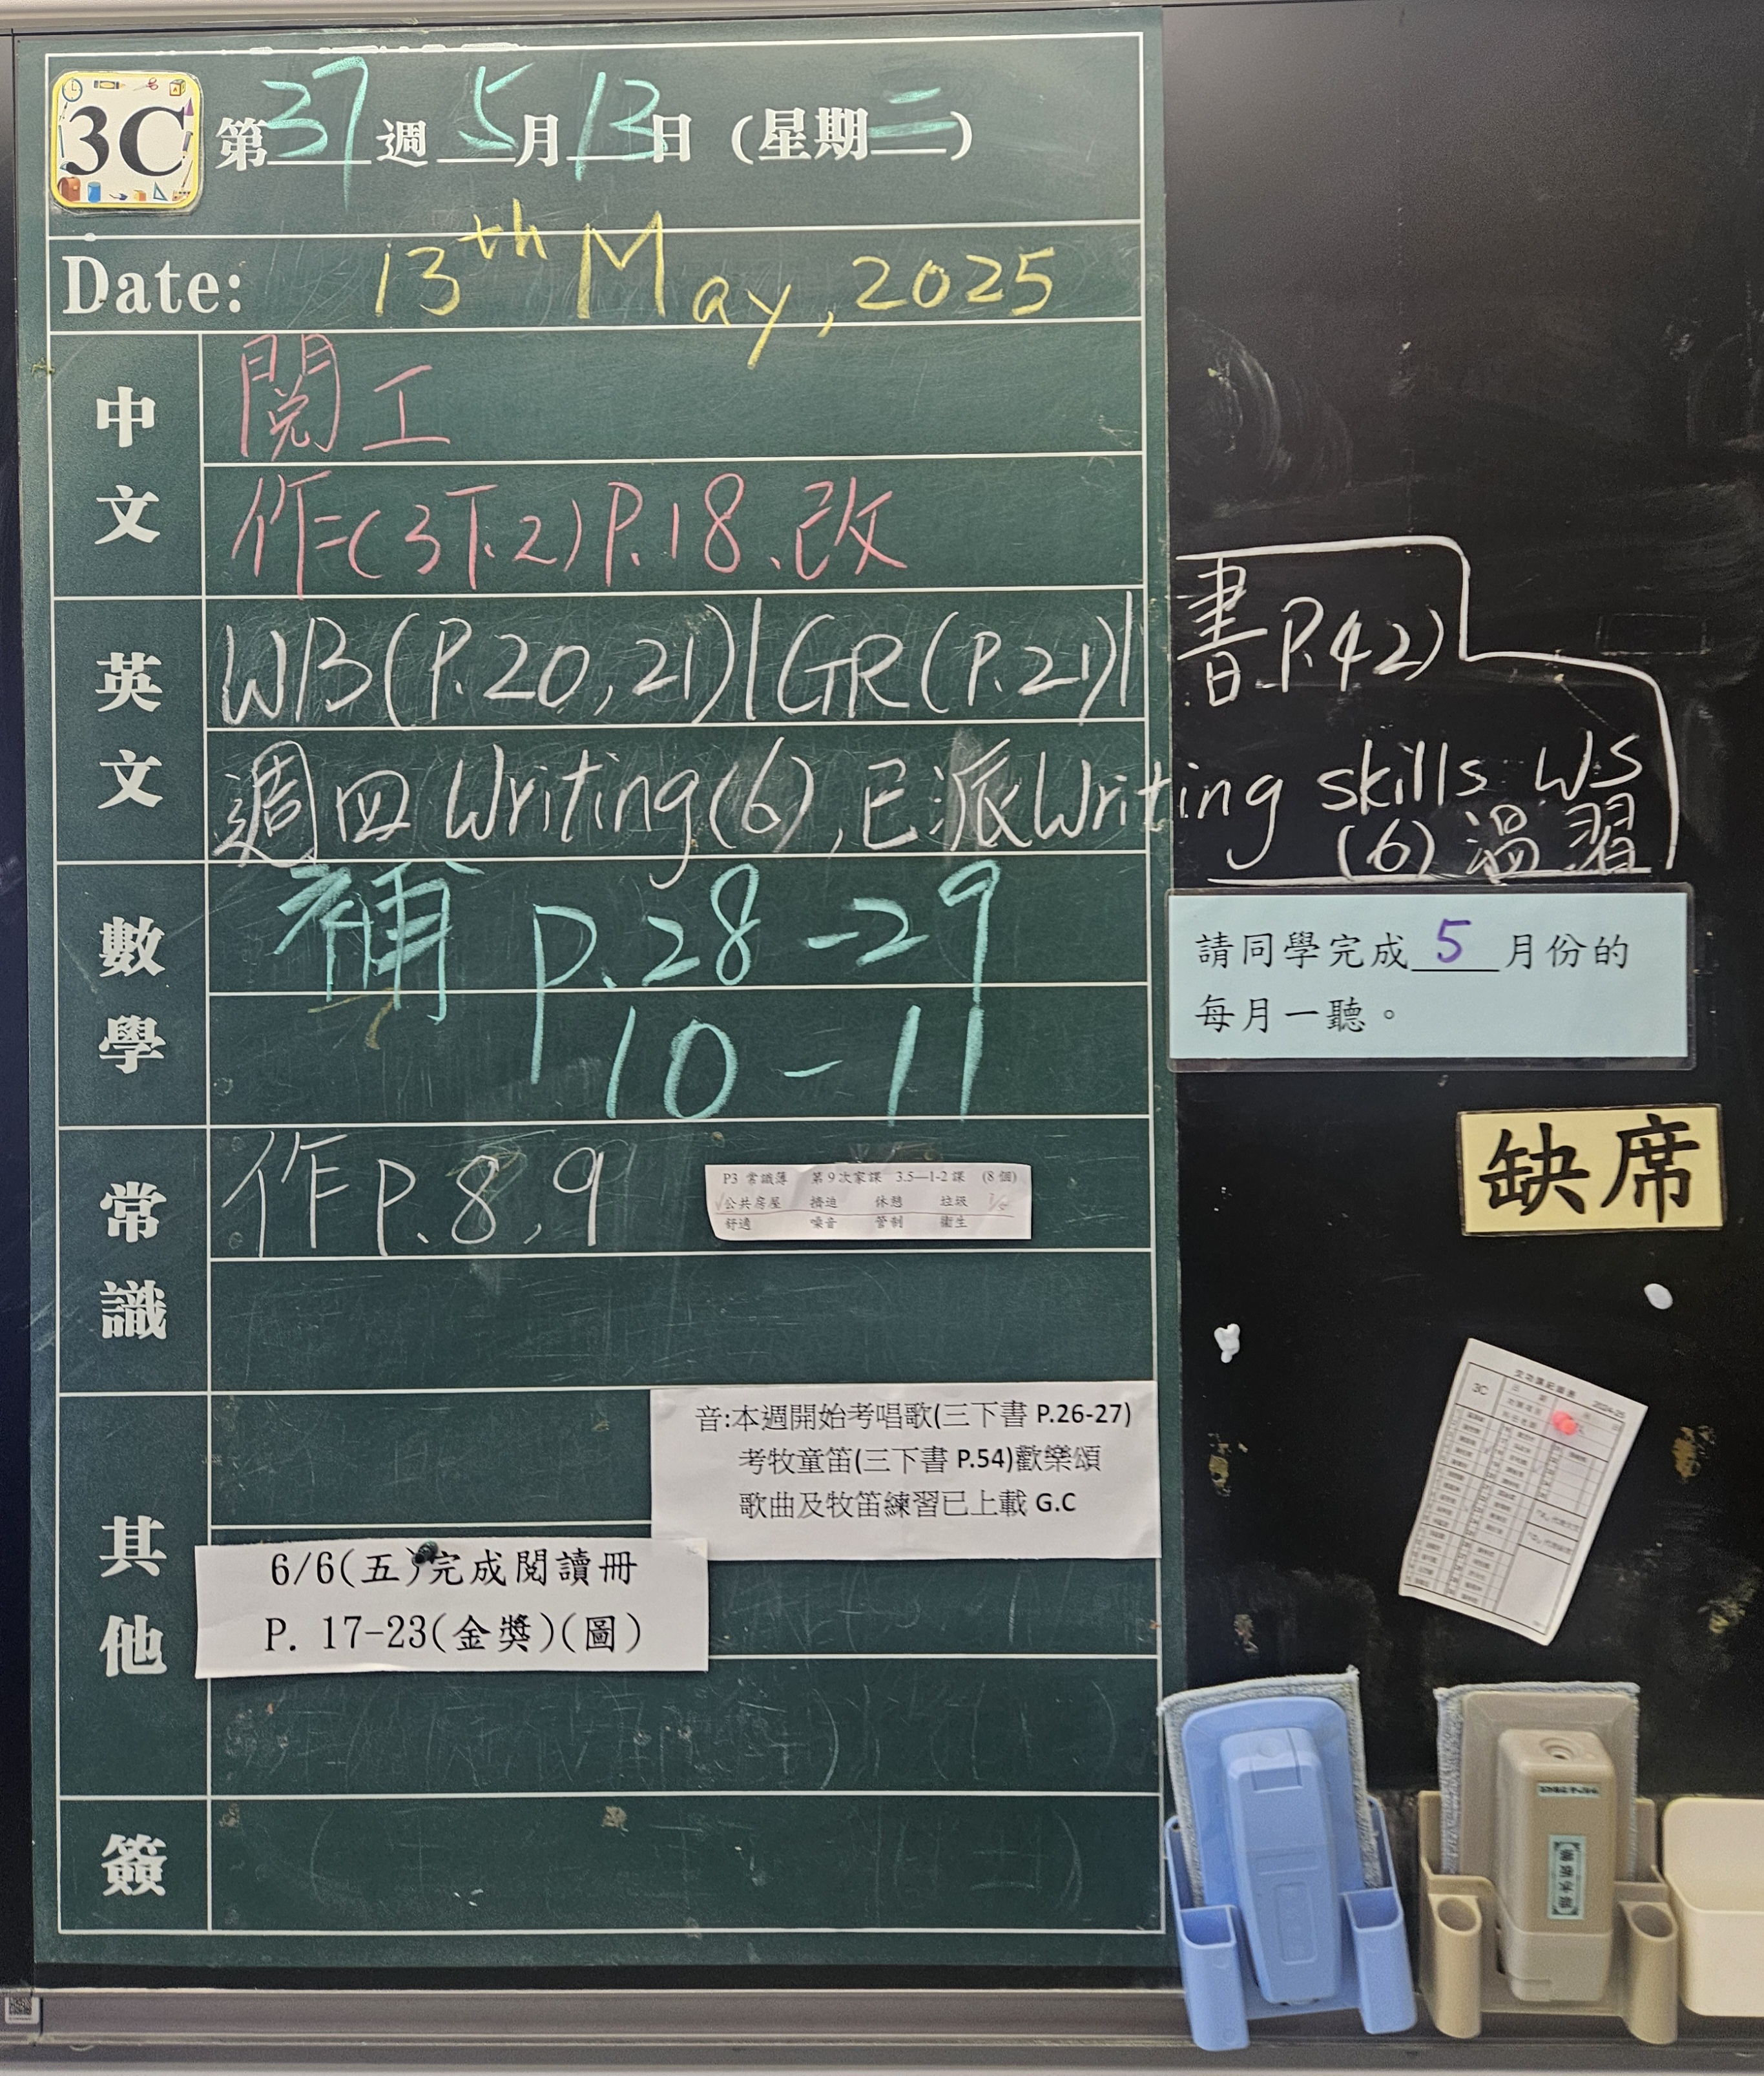 3C 第37週 5月13日 (星期二)
Date: 13th May, 2025
中文
閱工
作=(3下.2)P.18、改
英文
WB(P.20,21)|GR(P.21)|書P.42)
週四Writing(6),已派Writing skills WS
(6)溫習
數學
補 P.28-29
P.10-11
常識
作P.8,9
P3 常識簿 第9次家課 3.5—1-2課 (8個)
公共房屋 擠迫 休憩 垃圾
舒適 噪音 管制 衞生
其他
音:本週開始考唱歌(三下書 P.26-27)
考牧童笛(三下書 P.54)歡樂頌
歌曲及牧笛練習已上載 G.C
6/6(五)完成閱讀冊
P. 17-23(金獎)(圖)
簽
請同學完成5月份的
每月一聽。
缺席
3C
2024-25